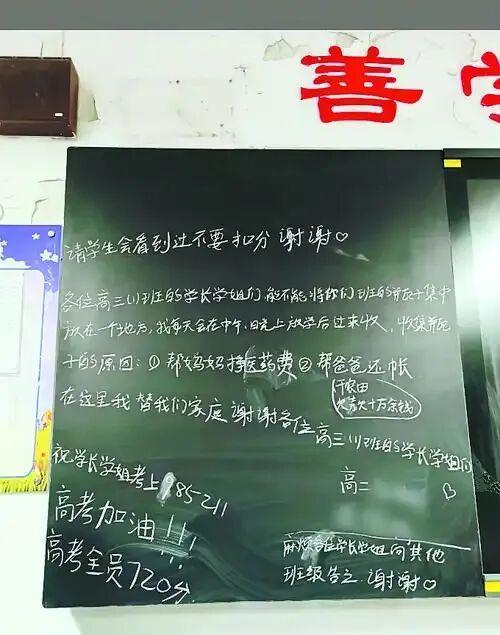 善学
请学生会看到过不要扣分 谢谢♡
各位高三(1)班的学长学姐们,能不能将你们班的瓶子集中
放在一个地方,我每天会在中午、晚上放学后过来收,收集瓶
子的原因:① 帮妈妈挣医药费 ② 帮爸爸还帐
(干农田
欠款十万余钱)
在这里我替我们家庭谢谢各位高三(1)班的学长学姐们
祝学长学姐考上985-211
高二 ♡
高考加油!!!
高考全员720分.
麻烦各位学长学姐向其他
班级告之.谢谢♡